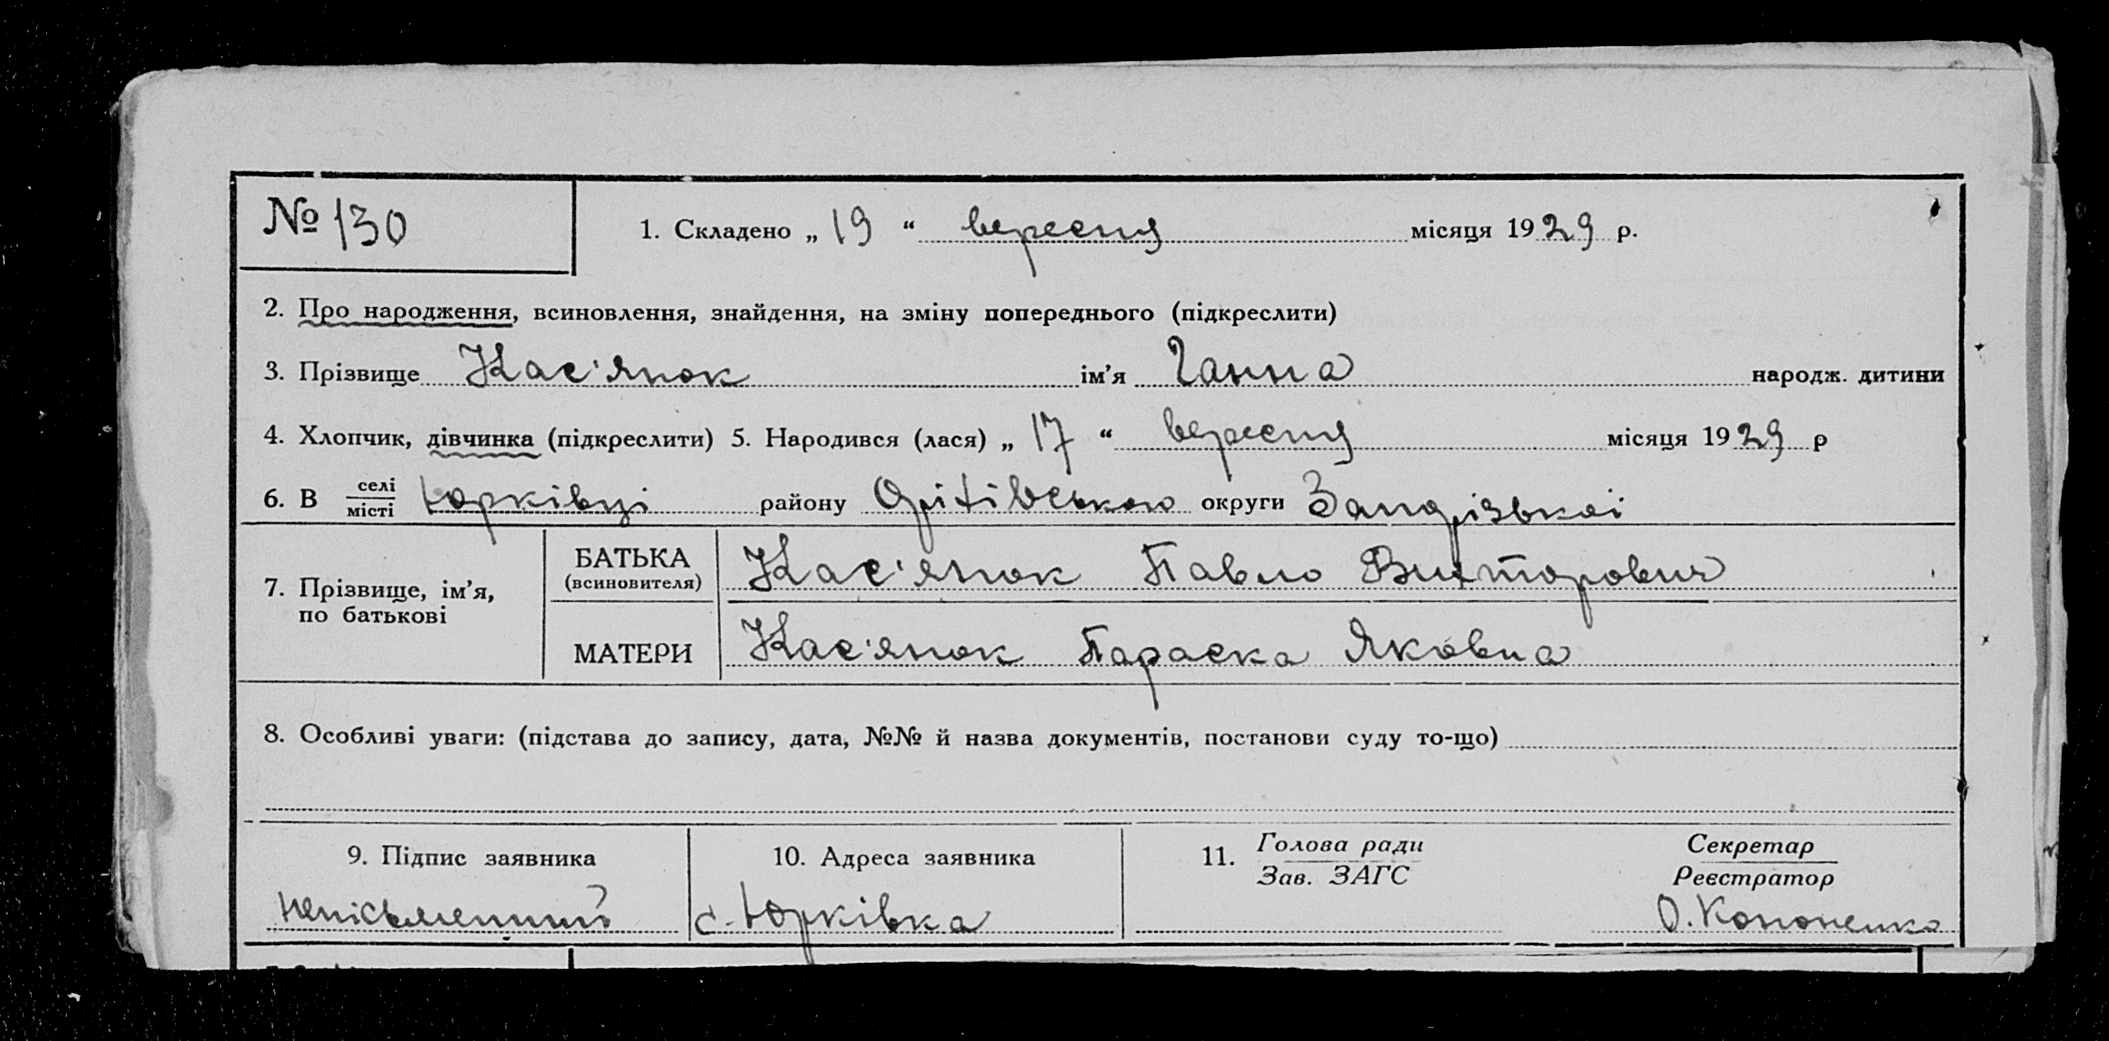 № 130
1. Складено „ 19 “ вересня місяця 1929 р.
2. Про народження, всиновлення, знайдення, на зміну попереднього (підкреслити)
3. Прізвище Кас'янок ім'я Ганна народж. дитини
4. Хлопчик, дівчинка (підкреслити) 5. Народився (лася) „ 17 “ вересня місяця 1929 р
6. В селі/місті Юрківці району Оріхівського округи Запорізької
7. Прізвище, ім'я, по батькові
БАТЬКА (всиновителя) Кас'янок Павло
МАТЕРИ Кас'янок Параска Яковна
8. Особливі уваги: (підстава до запису, дата, №№ й назва документів, постанови суду то-що)
9. Підпис заявника 10. Адреса заявника 11. Голова ради / Зав. ЗАГС Секретар / Реєстратор
неписьменний с. Юрківка О. Кононенко